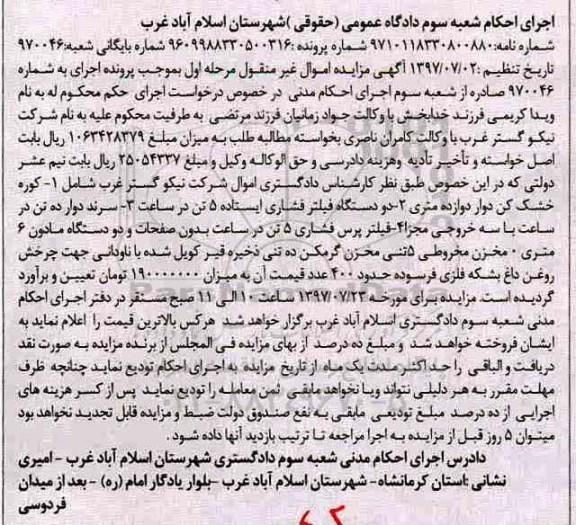 اجرای احکام شعبه سوم دادگاه عمومی (حقوقی )شهرستان اسلام آباد غرب
شماره نامه:۹۷۱۰۱۱۸۳۳۰۸۰۰۸۸۰ شماره پرونده :۹۶۰۹۹۸۸۳۳۰۵۰۰۳۱۶ شماره بایگانی شعبه:۹۷۰۰۴۶
تاریخ تنظیم :۱۳۹۷/۰۷/۰۲ آگهی مزایده اموال غیر منقول مرحله اول بموجب پرونده اجرای به شماره
۹۷۰۰۴۶ صادره از شعبه سوم اجرای احکام مدنی در خصوص درخواست اجرای حکم محکوم له به نام
ویدا کریمی فرزند خدابخش با وکالت جواد زمانیان فرزند مرتضی به طرفیت محکوم علیه به نام شرکت
نیکو گستر غرب با وکالت کامران ناصری بخواسته مطالبه طلب به میزان مبلغ ۱۰۶۳۴۲۸۳۷۹ ریال بابت
اصل خواسته و تأخیر تأدیه وهزینه دادرسی و حق الوکاله وکیل و مبلغ ۲۵۰۵۴۳۳۷ ریال بابت نیم عشر
دولتی که در این خصوص طبق نظر کارشناس دادگستری اموال شرکت نیکو گستر غرب شامل ۱- کوره
خشک کن دوار دوازده متری ۲-دو دستگاه فیلتر فشاری ایستاده ۵ تن در ساعت ۳- سرند دوار ده تن در
ساعت با سه خروجی مجزا۴-فیلتر پرس فشاری ۵ تن در ساعت بدون صفحات و دو دستگاه مادون ۶
متری ۰ مخزن مخروطی ۵تنی مخزن گرمکن ده تنی ذخیره قیر کویل شده با ناودانی جهت چرخش
روغن داغ بشکه فلزی فرسوده حدود ۴۰۰ عدد قیمت آن به میزان ۱۹۰۰۰۰۰۰۰ تومان تعیین و برآورد
گردیده است. مزایده برای مورخه ۱۳۹۷/۰۷/۲۳ ساعت ۱۰ الی ۱۱ صبح مستقر در دفتر اجرای احکام
مدنی شعبه سوم دادگستری اسلام آباد غرب برگزار خواهد شد هرکس بالاترین قیمت را اعلام نماید به
ایشان فروخته خواهد شد و مبلغ ده درصد از بهای مزایده فی المجلس از برنده مزایده به صورت نقد
دریافت و الباقی را حداکثر مدت یک ماه از تاریخ مزایده به اجرای احکام تودیع نماید چنانچه ظرف
مهلت مقرر به هر دلیلی نتواند ویا نخواهد مابقی ثمن معامله را تودیع نماید پس از کسر هزینه های
اجرایی از ده درصد مبلغ تودیعی مابقی به نفع صندوق دولت ضبط و مزایده قابل تجدید نخواهد بود
میتوان ۵ روز قبل از مزایده به اجرا مراجعه تا ترتیب بازدید آنها داده شود .
دادرس اجرای احکام مدنی شعبه سوم دادگستری شهرستان اسلام آباد غرب - امیری
نشانی :استان کرمانشاه- شهرستان اسلام آباد غرب -بلوار یادگار امام (ره) - بعد از میدان
فردوسی